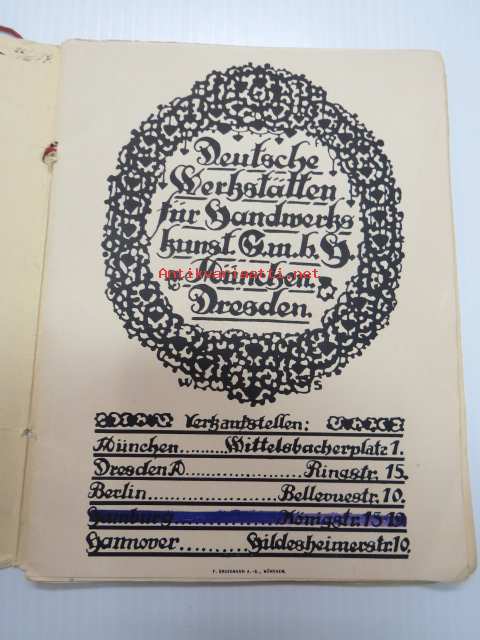 Deutsche
Werkstätten
für Handwerks
kunst G.m.b.H.
München.
Antikvariaatti.net
Dresden.
W S
Verkaufstellen:
München......Wittelsbacherplatz 1.
Dresden A..............Ringstr. 15.
Berlin................Bellevuestr. 10.
Hamburg Königstr. 15-19
Hannover..........Hildesheimerstr. 10.
F. BRUCKMANN A.-G., MÜNCHEN.